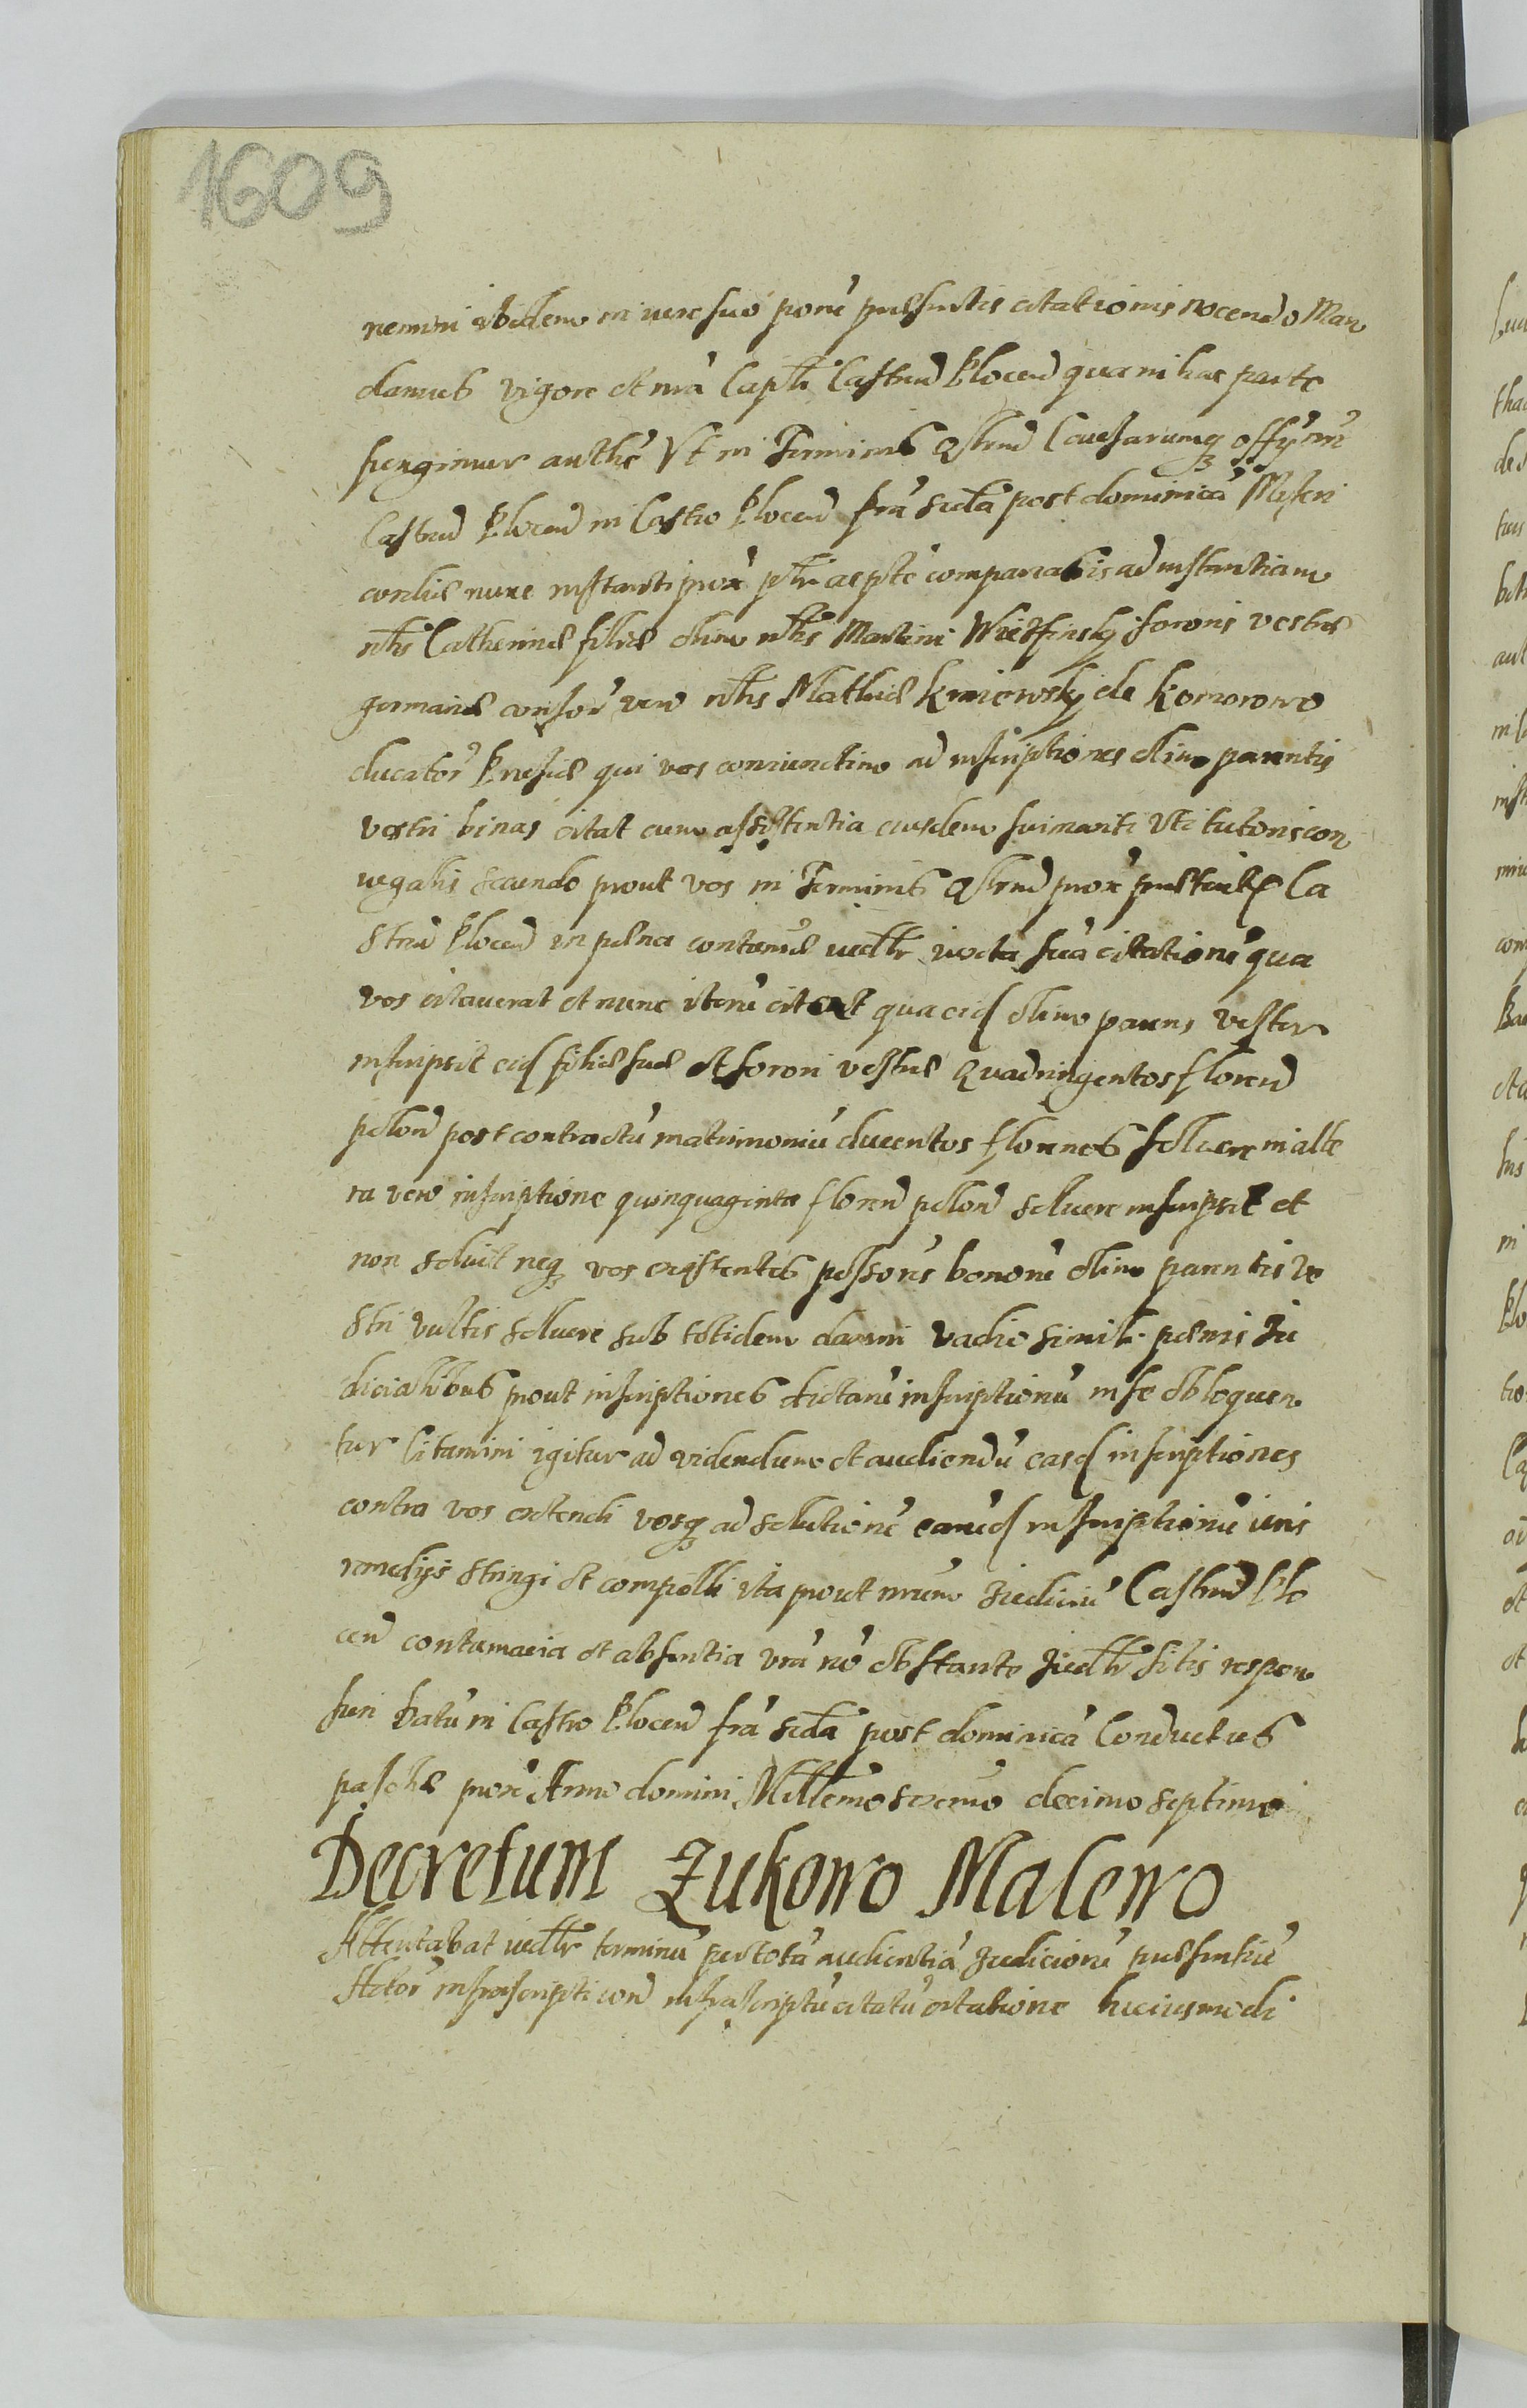 1609
nemini ibidem in iure suo ponè præsentis citationis nocendo Man
damus vigore et nrã Capli Castren Plocen qua in hac parte
fungimur authẽ Vt in Terminis qstrud Causarumq officÿ nri
Castren Plocen in Castro Plocen fra scda post dominicã Miseri
cordiæ nunc instanti prox pltr ac pstẽ compareatis ad instantiam
nblis Catherinæ filiæ olim nblis Martini sororis vestræ
germanæ consor vero nblis Mathiæ kmiowsky de komorowo
ducator Prusiæ qui vos coniunctim ad inscriptiones olim parentis
vestri binas citat cum assistentia eiusdem sui mariti vti tutoris con
iugalis secundo prout vos in Terminis qstrud prox præterit Ca
stren Plocen in pæna contumæ iudltr iuxta suã citationẽ qua
vos citauerat et nunc iterũ citat quia eid olim parens vester
inscripsit eid filiæ suæ et sorori vestræ Quadringentos floren
polon post contractũ matrimoniũ ducentos florenos soluere in alte
ra vero inscriptione quinquaginta floren polon soluere inscripsit et
non soluit neq vos existentes possorẽs bonorũ olim parentis ve
stri vultis soluere sub totidem damni vadio simili pænis Ju
dicialibus prout inscriptiones dictarũ inscriptionũ in se obloquun
tur Citamini igitur ad videndum et audiendũ easd inscriptiones
contra vos extendi vosq ad solutionẽ earũd inscriptionũ iuris
remedÿs stringi et compelli ita prout nrum Judiciũ Castren Plo
cen contumacia et absentia vrã nõ obstante Judltr sitis respon
suri Datũ in Castro Plocen fra scda post dominicã Conductus
paschæ prox Anno domini Millemo sexcmo decimo septimo
Decretum Zukowo Malewo
Attentabat iudltr terminũ per totã audientiã Judiciorũ præsentiũ
Actor infrascripti con infrascriptũ citatũ citatione huiusmodi